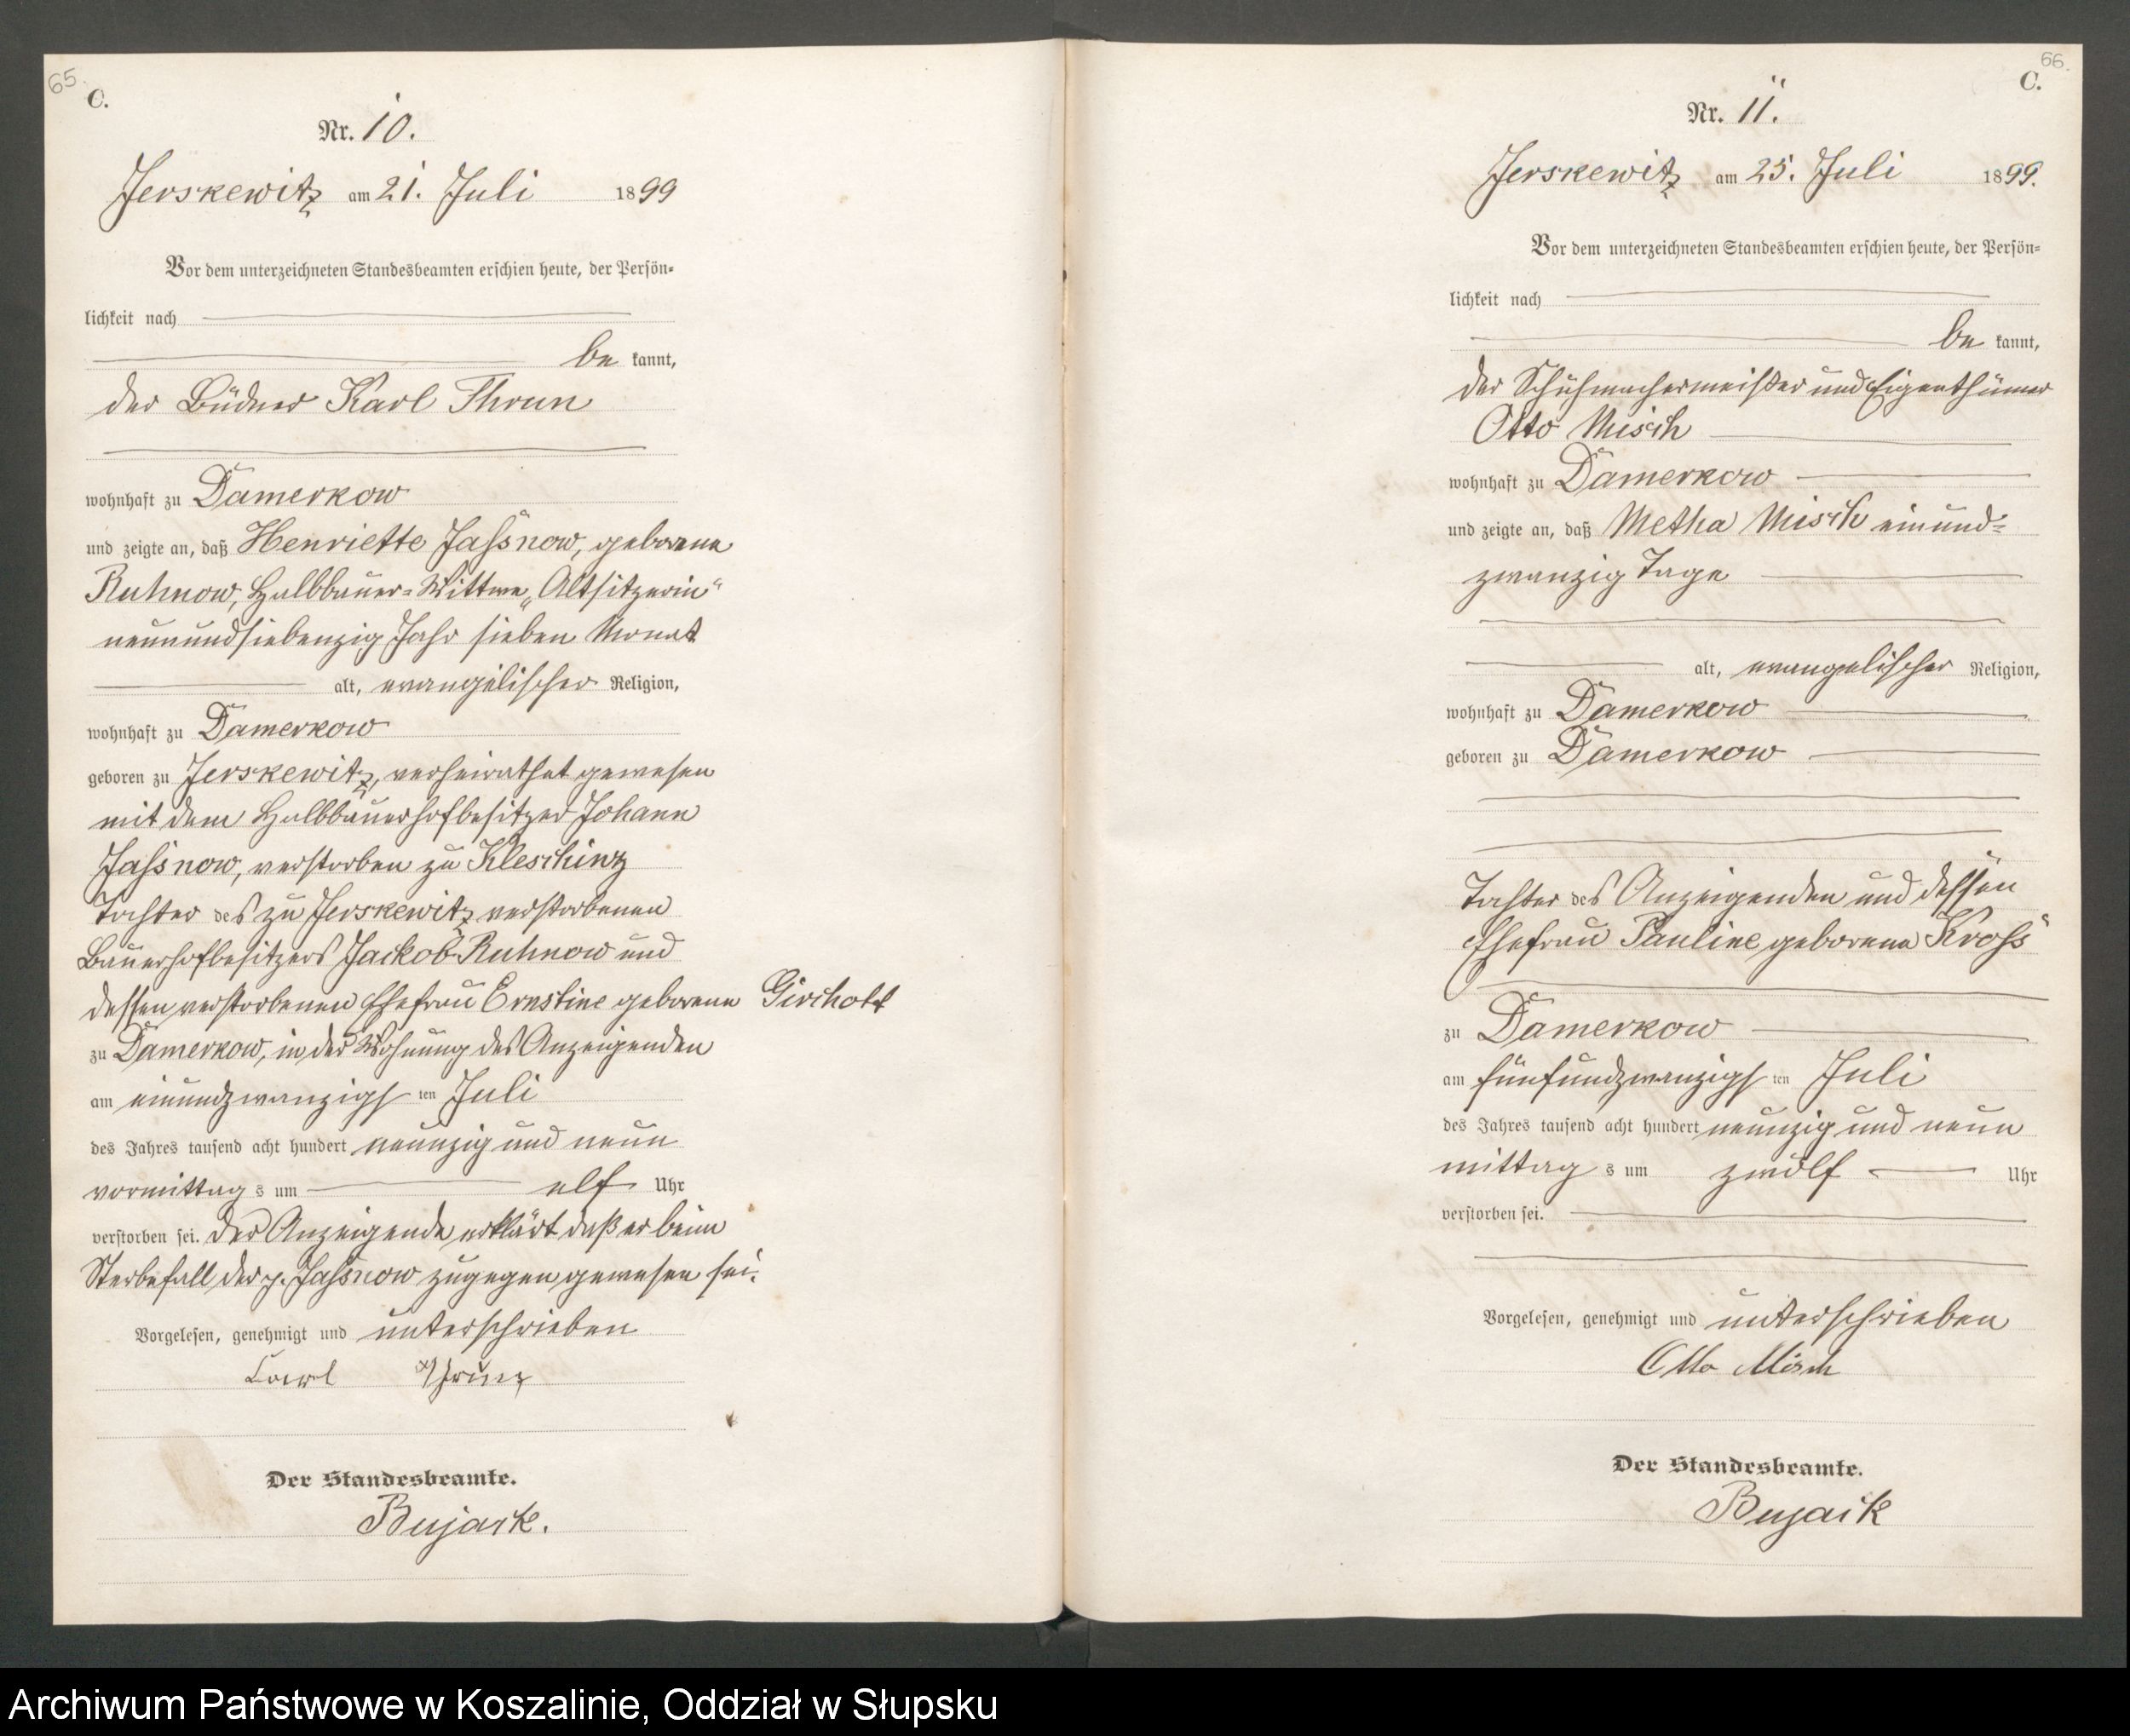 65.
C.
Nr. 10.
Jerskewitz am 21. Juli 1899
Vor dem unterzeichneten Standesbeamten erschien heute, der Persön-
lichkeit nach
be kannt,
der Büdner Karl Thrun
wohnhaft zu Damerkow
und zeigte an, daß Henriette Jassnow, geborene
Ruhnow, Halbbauer-Wittwe „Altsitzerin"
neunundsiebenzig Jahr sieben Monat
alt, evangelischer Religion,
wohnhaft zu Damerkow
geboren zu Jerskewitz, verheirathet gewesen
mit dem Halbbauerhofbesitzer Johann
Jassnow, verstorben zu Kleschinz
Tochter des zu Jerskewitz verstorbenen
Bauerhofbesitzers Jackob Ruhnow und
dessen verstorbenen Ehefrau Ernstine geborene
zu Damerkow, in der Wohnung des Anzeigenden
am einundzwanzigsten Juli
des Jahres tausend acht hundert neunzig und neun
vormittags um elf Uhr
verstorben sei. Der Anzeigende erklärt daß er beim
Sterbefall der p. Jassnow zugegen gewesen sei.
Vorgelesen, genehmigt und unterschrieben
Carl Thrun
Der Standesbeamte.
Bujack.
66.
C.
Nr. 11.
Jerskewitz am 25. Juli 1899.
Vor dem unterzeichneten Standesbeamten erschien heute, der Persön-
lichkeit nach
be kannt,
der Schuhmachermeister und Eigenthümer
Otto Misch
wohnhaft zu Damerkow
und zeigte an, daß Metha Misch einund-
zwanzig Tage
alt, evangelischer Religion,
wohnhaft zu Damerkow
geboren zu Damerkow
Tochter des Anzeigenden und dessen
Ehefrau Pauline geborene Kross
zu Damerkow
am fünfundzwanzigsten Juli
des Jahres tausend acht hundert neunzig und neun
mittags um zwölf Uhr
verstorben sei.
Vorgelesen, genehmigt und unterschrieben
Otto Misch
Der Standesbeamte.
Bujack
Archiwum Państwowe w Koszalinie, Oddział w Słupsku